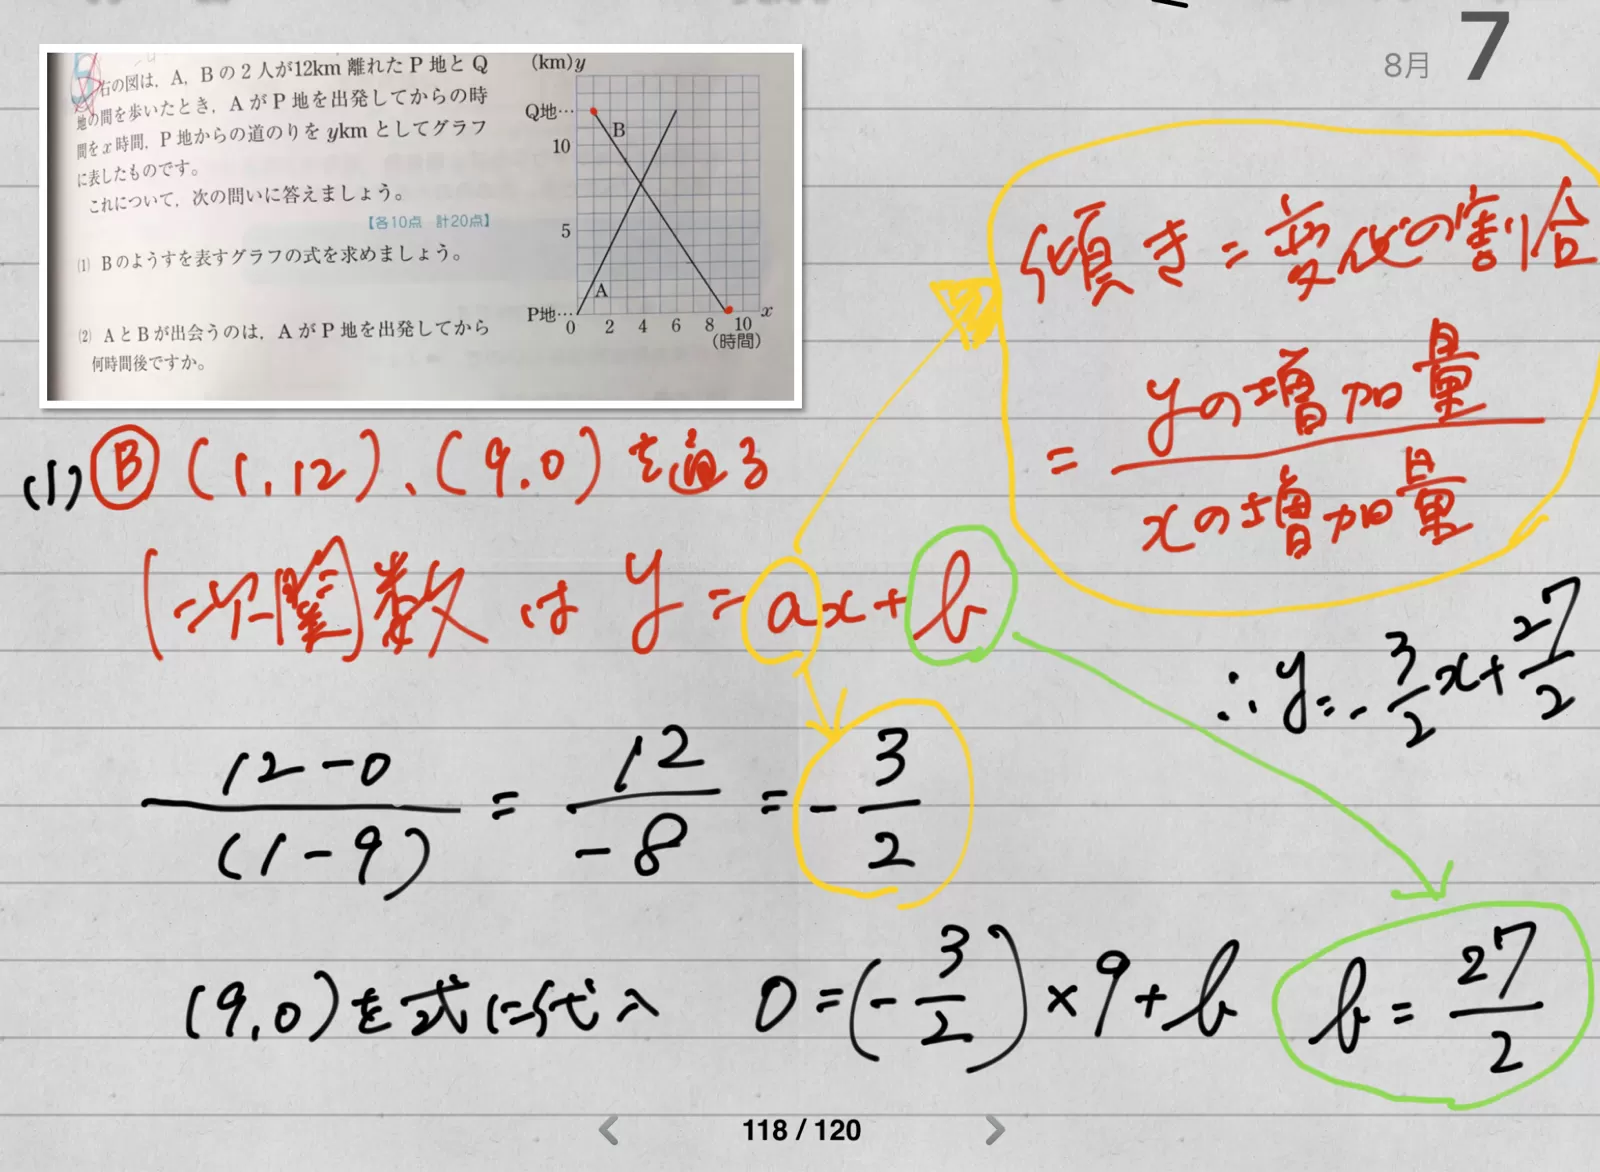 8月 7
右の図は，A，Bの2人が12km 離れたP地とQ
地の間を歩いたとき，AがP地を出発してからの時
間をx時間，P地からの道のりをykmとしてグラフ
に表したものです。
これについて，次の問いに答えましょう。
【各10点 計20点】
(1) Bのようすを表すグラフの式を求めましょう。
(2) AとBが出会うのは，AがP地を出発してから
何時間後ですか。
(km)y
Q地…
B
10
5
A
P地…
0 2 4 6 8 10 x
(時間)
傾き=変化の割合
= yの増加量
xの増加量
(1) B (1,12)、(9,0)を通る
(一次関)数 は y=ax+b
∴y=-3/2x+27/2
12-0/(1-9) = 12/-8 = -3/2
(9,0)を式に代入 0=(-3/2)×9+b b=27/2
118 / 120